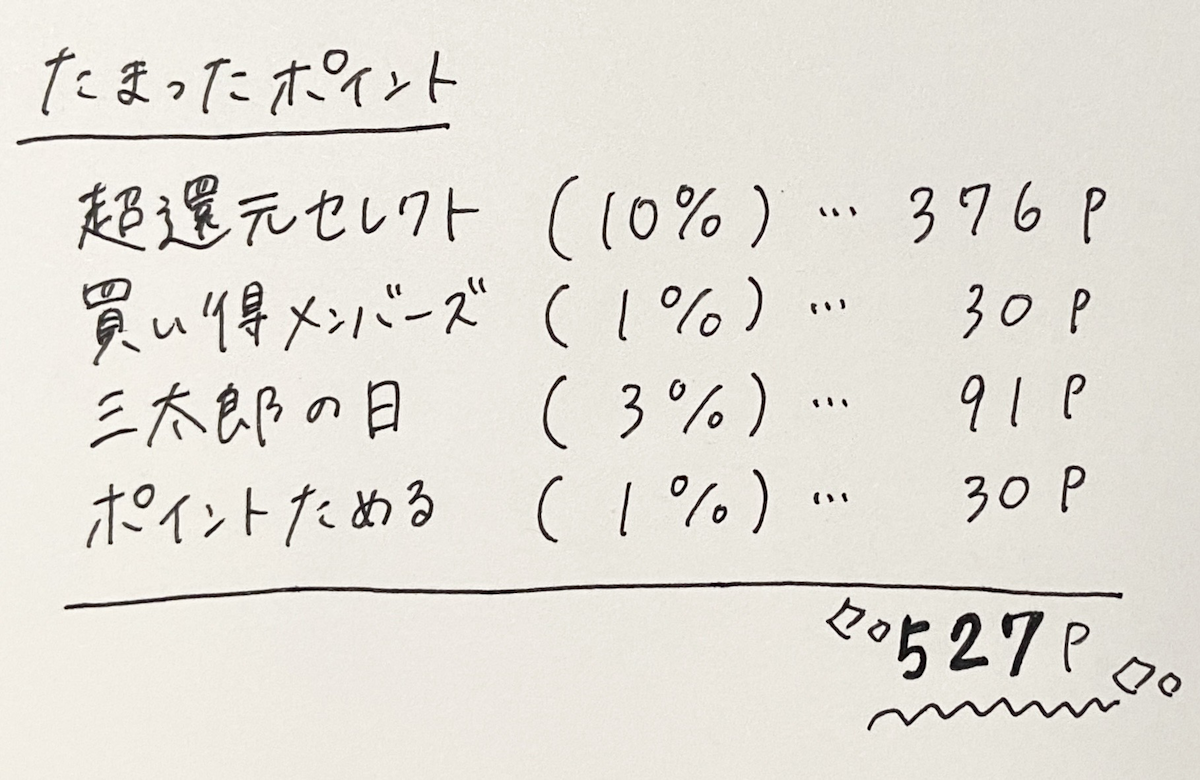 たまったポイント
超還元セレクト (10%) … 376 P
買い得メンバーズ (1%) … 30 P
三太郎の日 (3%) … 91 P
ポイントためる (1%) … 30 P
527 P